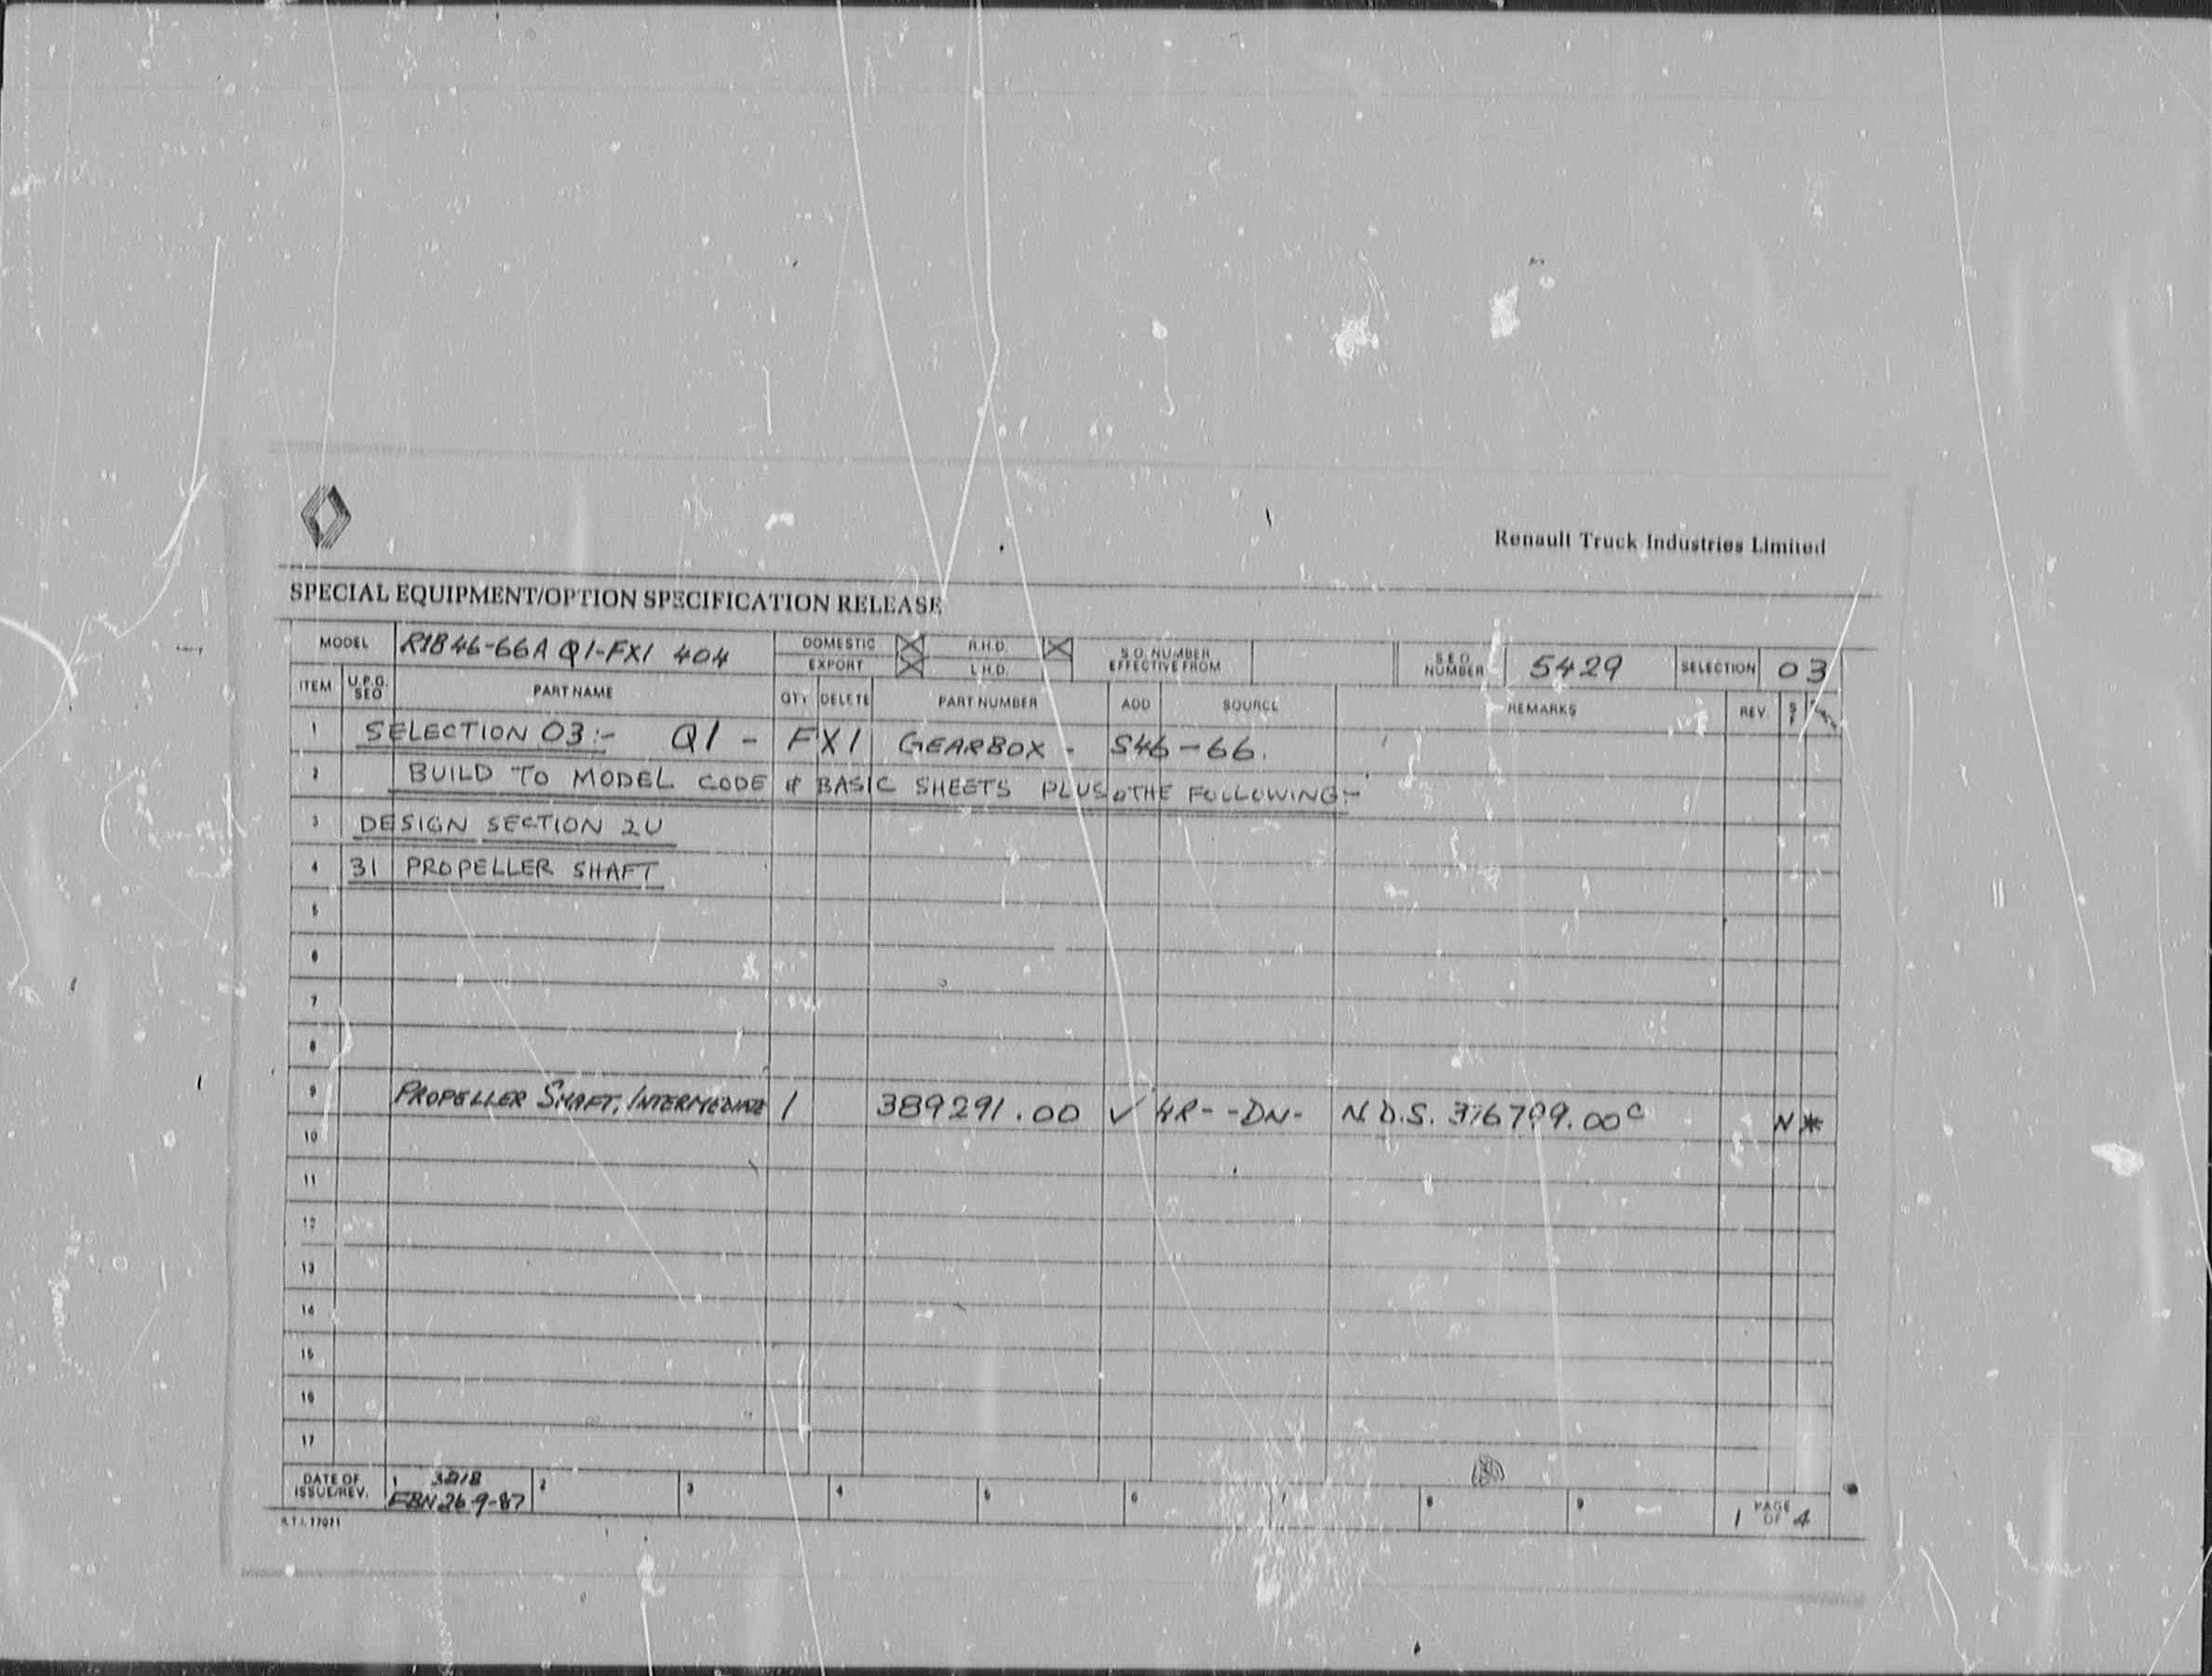 Renault Truck Industries Limited
SPECIAL EQUIPMENT/OPTION SPECIFICATION RELEASE
MODEL R1846-66A Q1-FX1 404 DOMESTIC R.H.D. S.O. NUMBER EFFECTIVE FROM S.E.O. NUMBER 5429 SELECTION 03
EXPORT L.H.D.
ITEM U.P.G. SEQ PART NAME QTY DELETE PART NUMBER ADD SOURCE REMARKS REV.
1 SELECTION 03:- Q1 - FX1 GEARBOX - S46-66.
2 BUILD TO MODEL CODE & BASIC SHEETS PLUS THE FOLLOWING:-
3 DESIGN SECTION 2U
4 31 PROPELLER SHAFT
5
6
7
8
9 PROPELLER SHAFT, INTERMEDIATE 1 389291.00 ✓ 4R--DN- N.D.S. 376799.00C N*
10
11
12
13
14
15
16
17
DATE OF ISSUE/REV. 1 26-9-87 2 3 4 5 6 7 8 9 1 PAGE OF 4
R.T.I. 77071